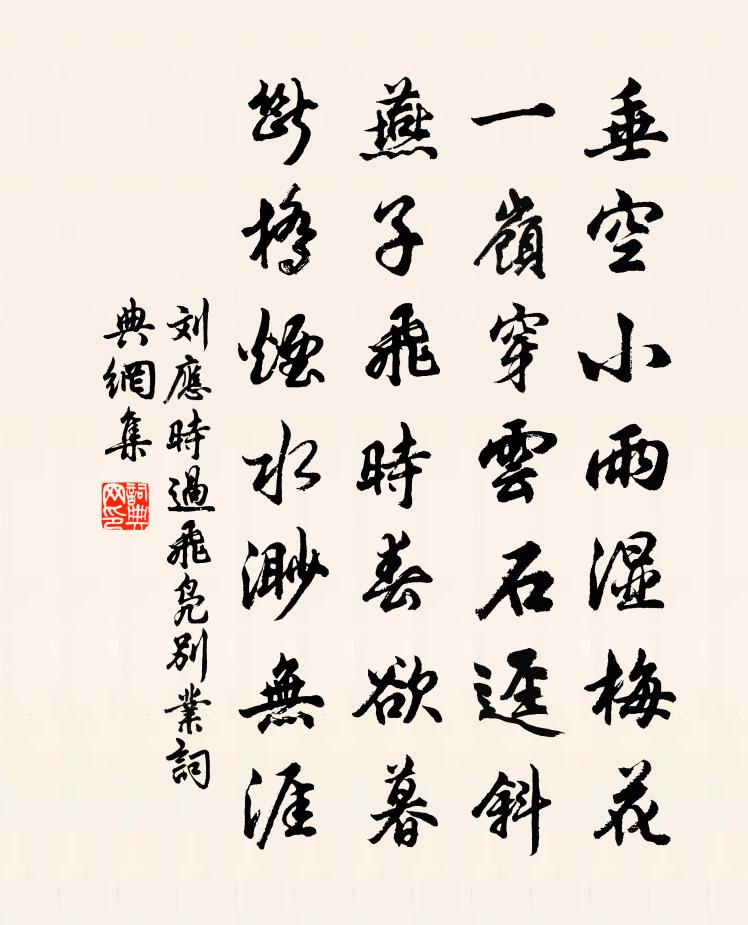 垂空小雨湿梅花
一嶺穿雲石逕斜
燕子飛時春欲暮
斷橋煙水渺無涯
刘應時過飛鳧別業詞
典網集
詞典
网印